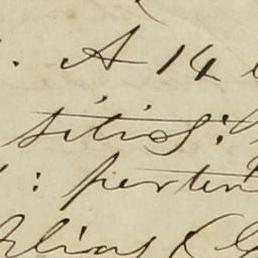 . A 14
sitios:
: perten
Elias (